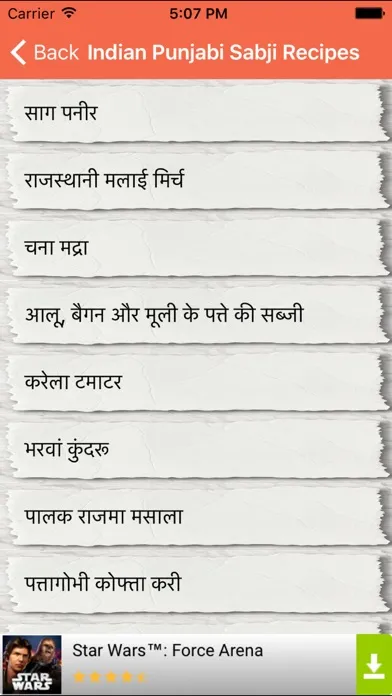 Carrier 5:07 PM
Back Indian Punjabi Sabji Recipes
साग पनीर
राजस्थानी मलाई मिर्च
चना मद्रा
आलू, बैगन और मूली के पत्ते की सब्जी
करेला टमाटर
भरवां कुंदरू
पालक राजमा मसाला
पत्तागोभी कोफ्ता करी
Star Wars™: Force Arena
STAR
WARS